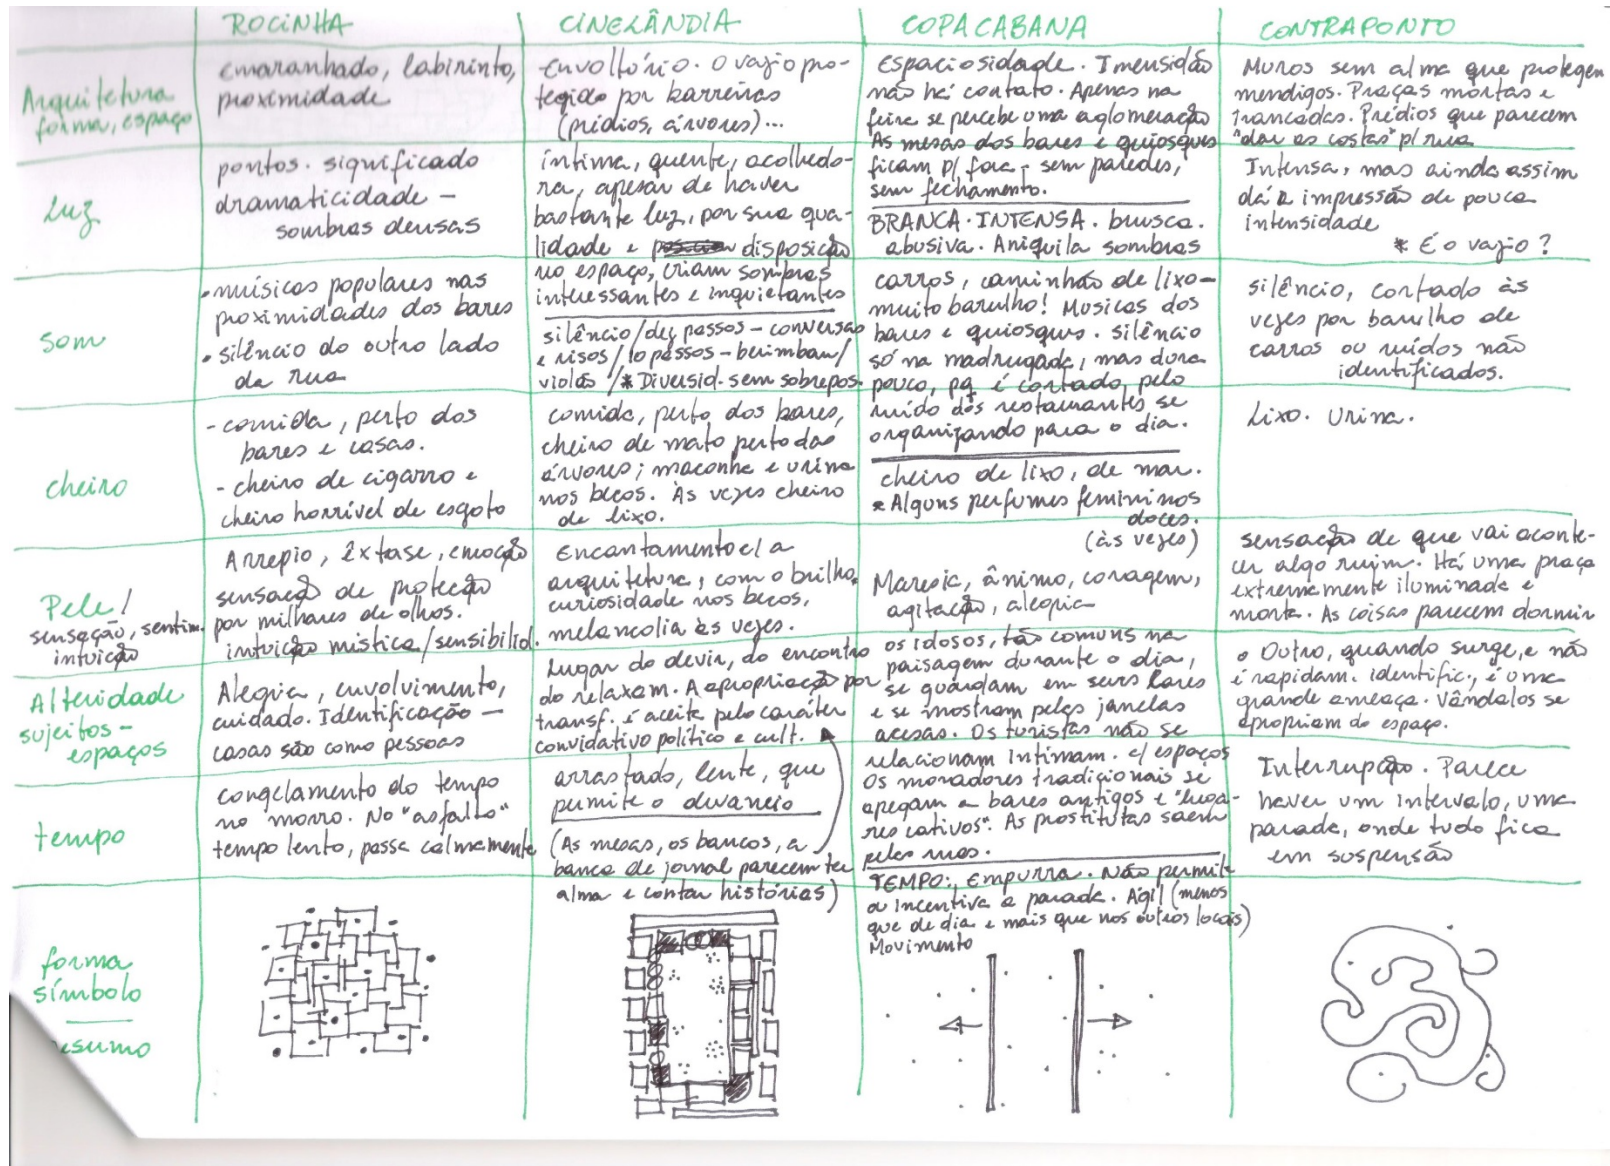 ROCINHA
CINELÂNDIA
COPACABANA
CONTRAPONTO
Arquitetura
forma, espaço
emaranhado, labirinto,
proximidade
envoltório. O vazio pro-
tegido por barreiras
(prédios, árvores)...
espaciosidade. Imensidão
não há contato. Apenas na
feira se percebe uma aglomeração
As mesas dos bares e quiosques
ficam p/ fora, sem paredes,
sem fechamento.
Muros sem alma que protegem
mendigos. Praças mortas e
trancadas. Prédios que parecem
"dar as costas" p/ rua
luz
pontos. significado
dramaticidade -
sombras densas
íntima, quente, acolhedo-
ra, apesar de haver
bastante luz, por sua qua-
lidade e disposição
no espaço, criam sombras
interessantes e inquietantes
BRANCA. INTENSA. brusca.
abusiva. Aniquila sombras
Intensa, mas ainda assim
dá a impressão de pouca
intensidade
* É o vazio?
som
• músicas populares nas
proximidades dos bares
• silêncio do outro lado
da rua
silêncio/dez passos - conversas
e risos/10 passos - berimbau/
violão /* Diversid. sem sobrepos.
carros, caminhão de lixo -
muito barulho! Musicas dos
bares e quiosques. silêncio
só na madrugada, mas dura
pouco, pq é cortado, pelo
ruído dos restaurantes se
organizando para o dia.
silêncio, cortado às
vezes por barulho de
carros ou ruídos não
identificados.
cheiro
- comida, perto dos
bares e casas.
- cheiro de cigarro e
cheiro horrível de esgoto
comida, perto dos bares,
cheiro de mato perto das
árvores; maconha e urina
nos becos. Às vezes cheiro
de lixo.
cheiro de lixo, de mar.
* Alguns perfumes femininos
doces.
(às vezes)
Lixo. Urina.
Pele!
sensação, sentim.
intuição
Arrepio, êxtase, emoção
sensação de proteção
por milhares de olhos.
intuição mística/sensibilid.
Encantamento c/ a
arquitetura, com o brilho,
curiosidade nos becos,
melancolia às vezes.
Maresia, ânimo, coragem,
agitação, alegria
sensação de que vai aconte-
cer algo ruim. Há uma praça
extremamente iluminada e
morta. As coisas parecem dormir
Alteridade
sujeitos -
espaços
Alegria, envolvimento,
cuidado. Identificação -
casas são como pessoas
Lugar do devir, do encontro
do relaxam. A apropriação por
transf. é aceita pelo caráter
convidativo político e cult.
os idosos, tão comuns na
paisagem durante o dia,
se guardam em seus lares
e se mostram pelas janelas
acesas. Os turistas não se
relacionam intimam. c/ espaços
Os moradores tradicionais se
apegam a bares antigos e "luga-
res cativos". As prostitutas saem
pelas ruas.
o Outro, quando surge, e não
é rapidam. identific., é uma
grande ameaça. Vândalos se
apropriam do espaço.
tempo
congelamento do tempo
no morro. No "asfalto"
tempo lento, passa calmamente
arrastado, lento, que
permite o devaneio
(As mesas, os bancos, a
banca de jornal parecem ter
alma e contar histórias)
TEMPO: Empurra. Não permite
ou incentiva a parada. Ágil (menos
que de dia e mais que nos outros locais)
Movimento
Interrupção. Parece
haver um intervalo, uma
parada, onde tudo fica
em suspensão
forma
símbolo